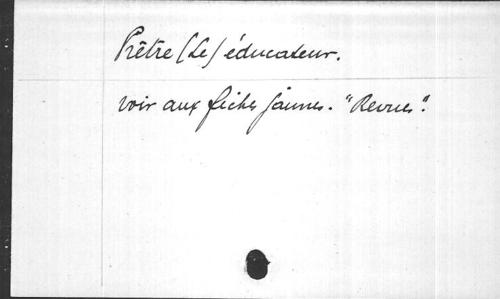 Prêtre (Le) éducateur.
voir aux fiches jaunes. "Revues".